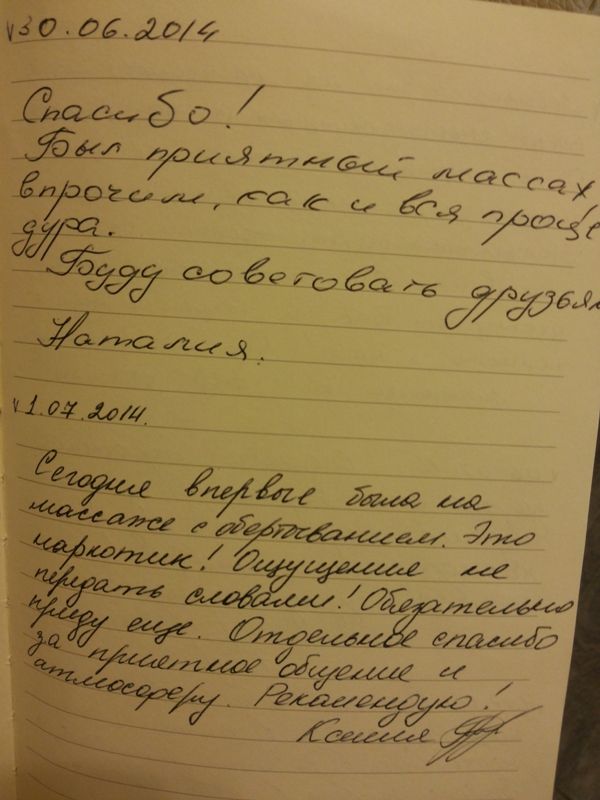 v 30.06.2014
Спасибо!
Был приятный массаж,
впрочим, как и вся проце
дура.
Буду советовать друзьям
Наталия.
v 1.07.2014.
Сегодня впервые была на
массаже с обертыванием. Это
наркотик! Ощущения не
передать словами! Обязательно
приду еще. Отдельное спасибо
за приятное общение и
атмосферу. Рекомендую!
Ксения